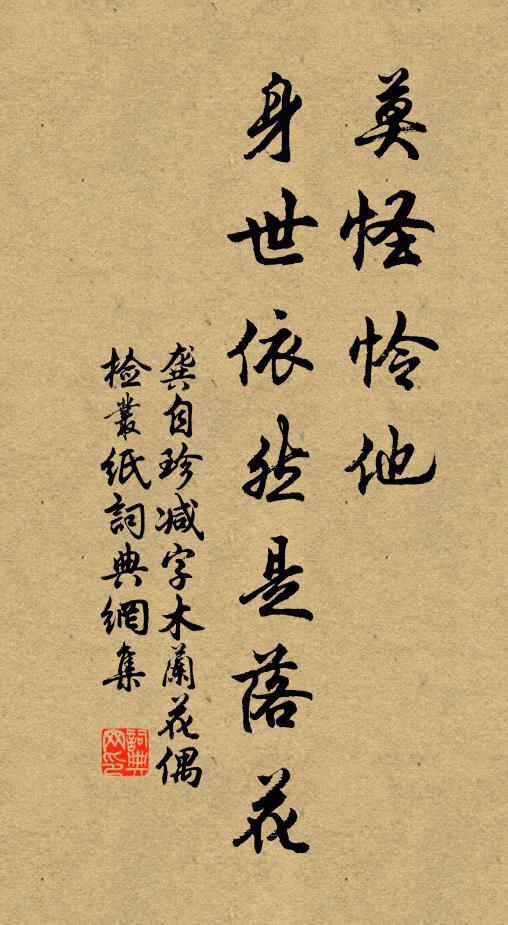 莫怪怜他
身世依然是落花
龚自珍减字木蘭花偶
检叢纸詞典網集
詞典
网印